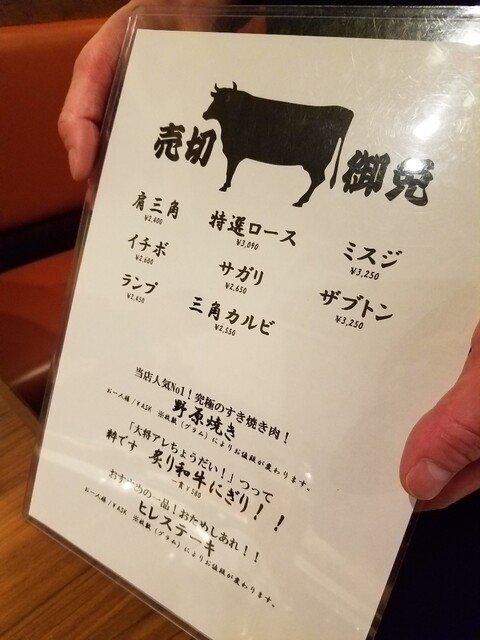 売切
御免
肩三角
¥2,400
特選ロース
¥3,090
ミスジ
¥3,250
イチボ
¥2,600
サガリ
¥2,650
ザブトン
¥3,250
ランプ
¥2,450
三角カルビ
¥2,550
当店人気No1！究極のすき焼き肉！
野原焼き
お一人様 /¥ASK ※枚数（グラム）によりお値段が変わります。
「大将アレちょうだい！」つって
粋です 炙り和牛にぎり！！
一貫¥580
おすすめの一品！おためしあれ！！
ヒレステーキ
お一人様 /¥ASK ※枚数（グラム）によりお値段が変わります。